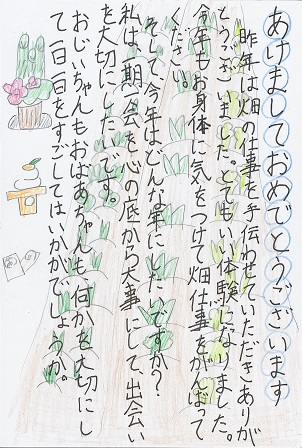 あけましておめでとうございます
昨年は畑の仕事を手伝わせていただきありが
とうございました。とてもいい体験になりました。
今年もお身体に気をつけて畑仕事をがんばって
ください。
そして、今年はどんな年にしたいですか？
私は一期一会を心の底から大事にして、出会い
を大切にしたいです。
おじいちゃんもおばあちゃんも何かを大切にし
て一日一日をすごしてはいかがでしょうか。